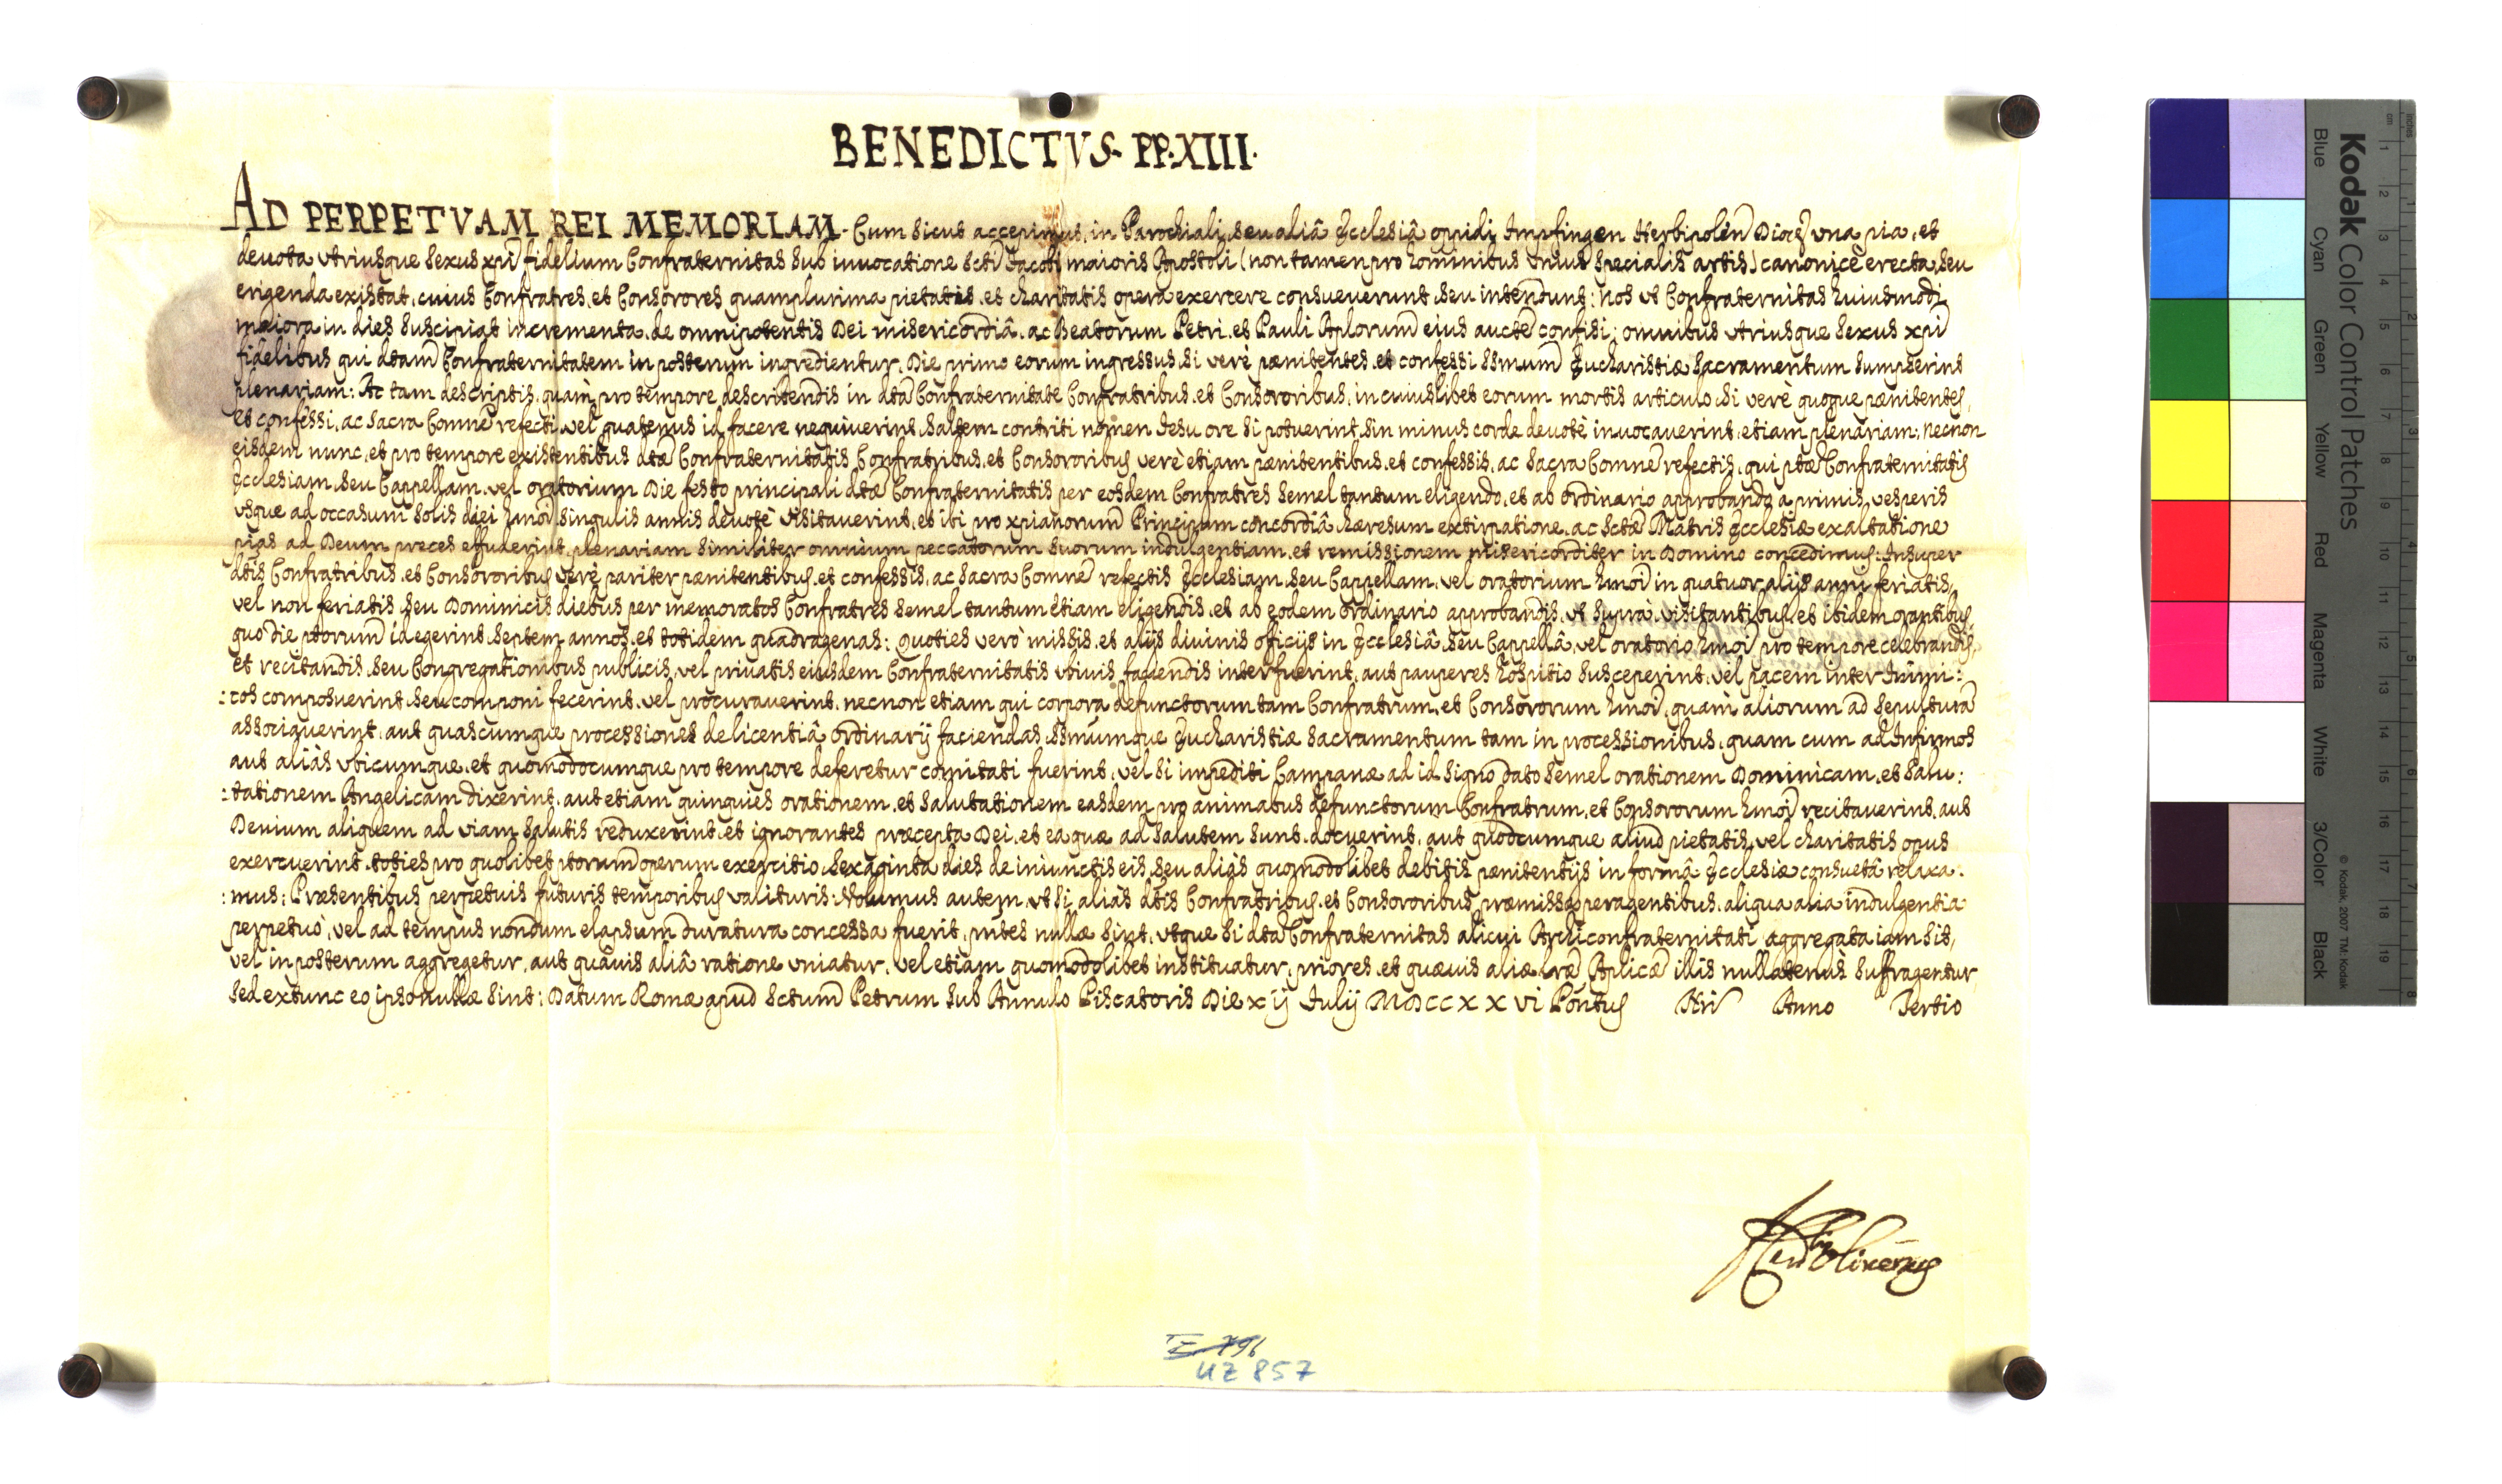 BENEDICTVS· PP·XIII·
AD PERPETVAM REI MEMORIAM· Cum sicut accepimus, in Parochiali, seu aliâ Ecclesiâ oppidi Impfingen Herbipolen Dioc vna pia, et
deuota vtriusque sexus xpi fidelium Confraternitas sub inuocatione Scti Jacobi maioris Apostoli (non tamen pro hominibus vnius specialis artis) canonicè erecta, seu
erigenda existat, cuius Confratres, et Consorores quamplurima pietatis, et charitatis opera exercere consueuerunt, seu intendunt: Nos vt Confraternitas huiusmodi
maiora in dies suscipiat incrementa, de omnipotentis Dei misericordiâ, ac Beatorum Petri, et Pauli Aplorum eius aucte confisi; omnibus vtriusque sexus xpi
fidelibus qui dtam Confraternitatem in posterum ingredientur, Die primo eorum ingressus, si verè pænitentes, et confessi ssmum Eucharistiæ Sacramentum sumpserint
plenariam: Ac tam descriptis, quàm pro tempore describendis in dta Confraternitate Confratribus, et Consororibus, in cuiuslibet eorum mortis articulo, si verè quoque pænitentes,
et confessi, ac sacra Comne refecti, vel quatenus id facere nequiuerint, saltem contriti nomen Iesu ore si potuerint, sin minus corde deuotè inuocauerint, etiam plenariam; Necnon
eisdem nunc, et pro tempore existentibus dtæ Confraternitatis Confratribus, et Consororibus verè etiam pænitentibus, et confessis, ac sacra Comne refectis, qui ptæ Confraternitatis
Ecclesiam, seu Cappellam, vel oratorium Die festo principali dtæ Confraternitatis per eosdem Confratres semel tantum eligendo, et ab ordinario approbando a primis vesperis
vsque ad occasum solis diei hmoi singulis annis deuotè visitauerint, et ibi pro xpianorum Principum concordiâ, hæresum extirpatione, ac Sctæ Matris Ecclesiæ exaltatione
pias ad Deum preces effuderint, plenariam similiter omnium peccatorum suorum indulgentiam, et remissionem misericorditer in Domino concedimus: Insuper
dtis Confratribus, et Consororibus verè pariter pænitentibus, et confessis, ac sacra Comne refectis Ecclesiam, seu Cappellam, vel oratorium hmoi in quatuor alijs anni feriatis,
vel non feriatis, seu Dominicis diebus per memoratos Confratres semel tantum etiam eligendis, et ab eodem ordinario approbandis, vt supra, visitantibus, et ibidem orantibus,
quo die ptorum id egerint, septem annos, et totidem quadragenas: Quoties verò missis, et alijs diuinis officijs in Ecclesiâ, seu Cappellâ, vel oratorio hmoi pro tempore celebrandis,
et recitandis, seu Congregationibus publicis, vel priuatis eiusdem Confraternitatis vbiuis faciendis interfuerint, aut pauperes hospitio susceperint, vel pacem inter Inimi:
:cos composuerint, seu componi fecerint, vel procurauerint, necnon etiam qui corpora defunctorum tam Confratrum, et Consororum hmoi, quàm aliorum ad sepultura
associauerint, aut quascumque processiones de licentiâ ordinarij faciendas, ssmumque Eucharistiæ Sacramentum tam in processionibus, quam cum ad Infirmos
aut aliàs vbicumque, et quomodocumque pro tempore deferetur comitati fuerint, vel si impediti Campanæ ad id signo dato semel orationem Dominicam, et Salu:
:tationem Angelicam dixerint, aut etiam quinquies orationem, et salutationem easdem pro animabus defunctorum Confratrum, et Consororum hmoi recitauerint, aut
Deuium aliquem ad viam salutis reduxerint, et ignorantes præcepta Dei, et ea quæ ad salutem sunt, docuerint, aut quodcumque aliud pietatis, vel charitatis opus
exercuerint, toties pro quolibet ptorum operum exercitio, sexaginta dies de iniunctis eis, seu aliàs quomodolibet debitis pænitentijs in formâ Ecclesiæ consuetâ relaxa:
:mus: Præsentibus perpetuis futuris temporibus valituris. Volumus autem, vt si aliàs dtis Confratribus, et Consororibus præmissa peragentibus, aliqua alia indulgentia
perpetuò, vel ad tempus nondum elapsum duratura concessa fuerit, pntes nullæ sint, vtque si dta Confraternitas alicui Archiconfraternitati aggregata iam sit,
vel in posterum aggregetur, aut quâuis aliâ ratione vniatur, vel etiam quomodolibet instituatur, priores, et quæuis aliæ lræ Aplicæ illis nullatenus suffragentur,
sed extunc eo ipso nullæ sint: Datum Romæ apud Sctum Petrum sub Annulo Piscatoris Die xij Iulij MDCCXXVI Pontus Nri Anno Tertio
UZ 857
Kodak Color Control Patches
Blue Cyan Green Yellow Red Magenta White 3/Color Black
© Kodak, 2007 TM: Kodak
cm 1 2 3 4 5 6 7 8 9 10 11 12 13 14 15 16 17 18 19
inches 1 2 3 4 5 6 7 8